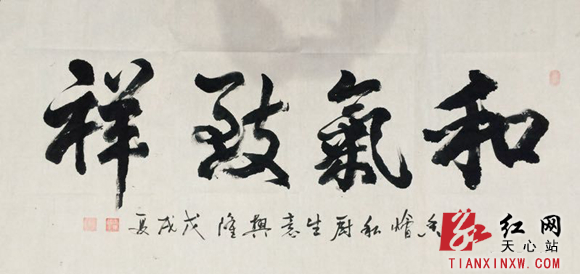 和氣致祥
私厨生意興隆 戊戌夏
红网
天心站
TIANXINXW.COM